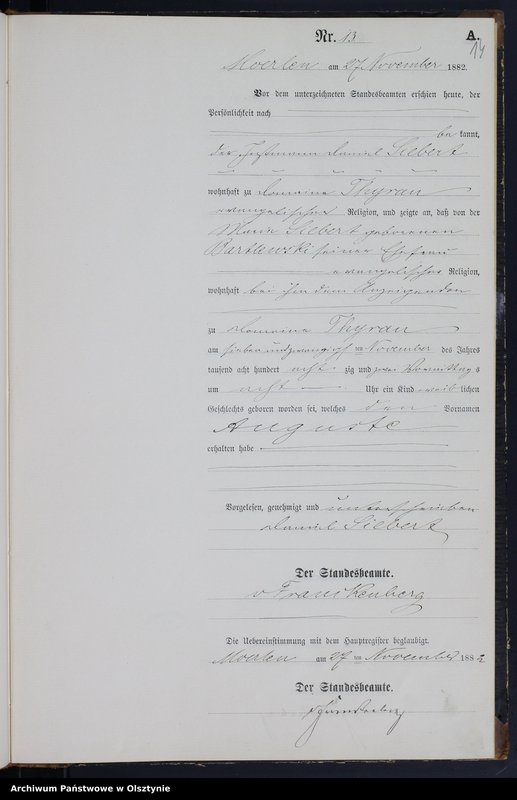 Nr. 13
A.
14
Moerlen am 27 November 1882.
Vor dem unterzeichneten Standesbeamten erschien heute, der
Persönlichkeit nach
be kannt,
der Instmann Daniel Siebert
wohnhaft zu Domaine Thyrau
evangelischer Religion, und zeigte an, daß von der
Maria Siebert geborenen
Bartlewski seiner Ehefrau
evangelischer Religion,
wohnhaft bei ihm dem Anzeigenden
zu Domaine Thyrau
am sieben und zwanzigsten November des Jahres
tausend acht hundert acht zig und zwei Vormittag s
um acht Uhr ein Kind weib lichen
Geschlechts geboren worden sei, welches den Vornamen
Auguste
erhalten habe
Vorgelesen, genehmigt und unterschrieben
Daniel Siebert
Der Standesbeamte.
v Franckenberg
Die Uebereinstimmung mit dem Hauptregister beglaubigt.
Moerlen am 27 ten November 1882
Der Standesbeamte.
Archiwum Państwowe w Olsztynie